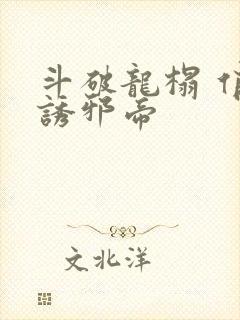 斗破龍榻
誘邪帝
文北洋